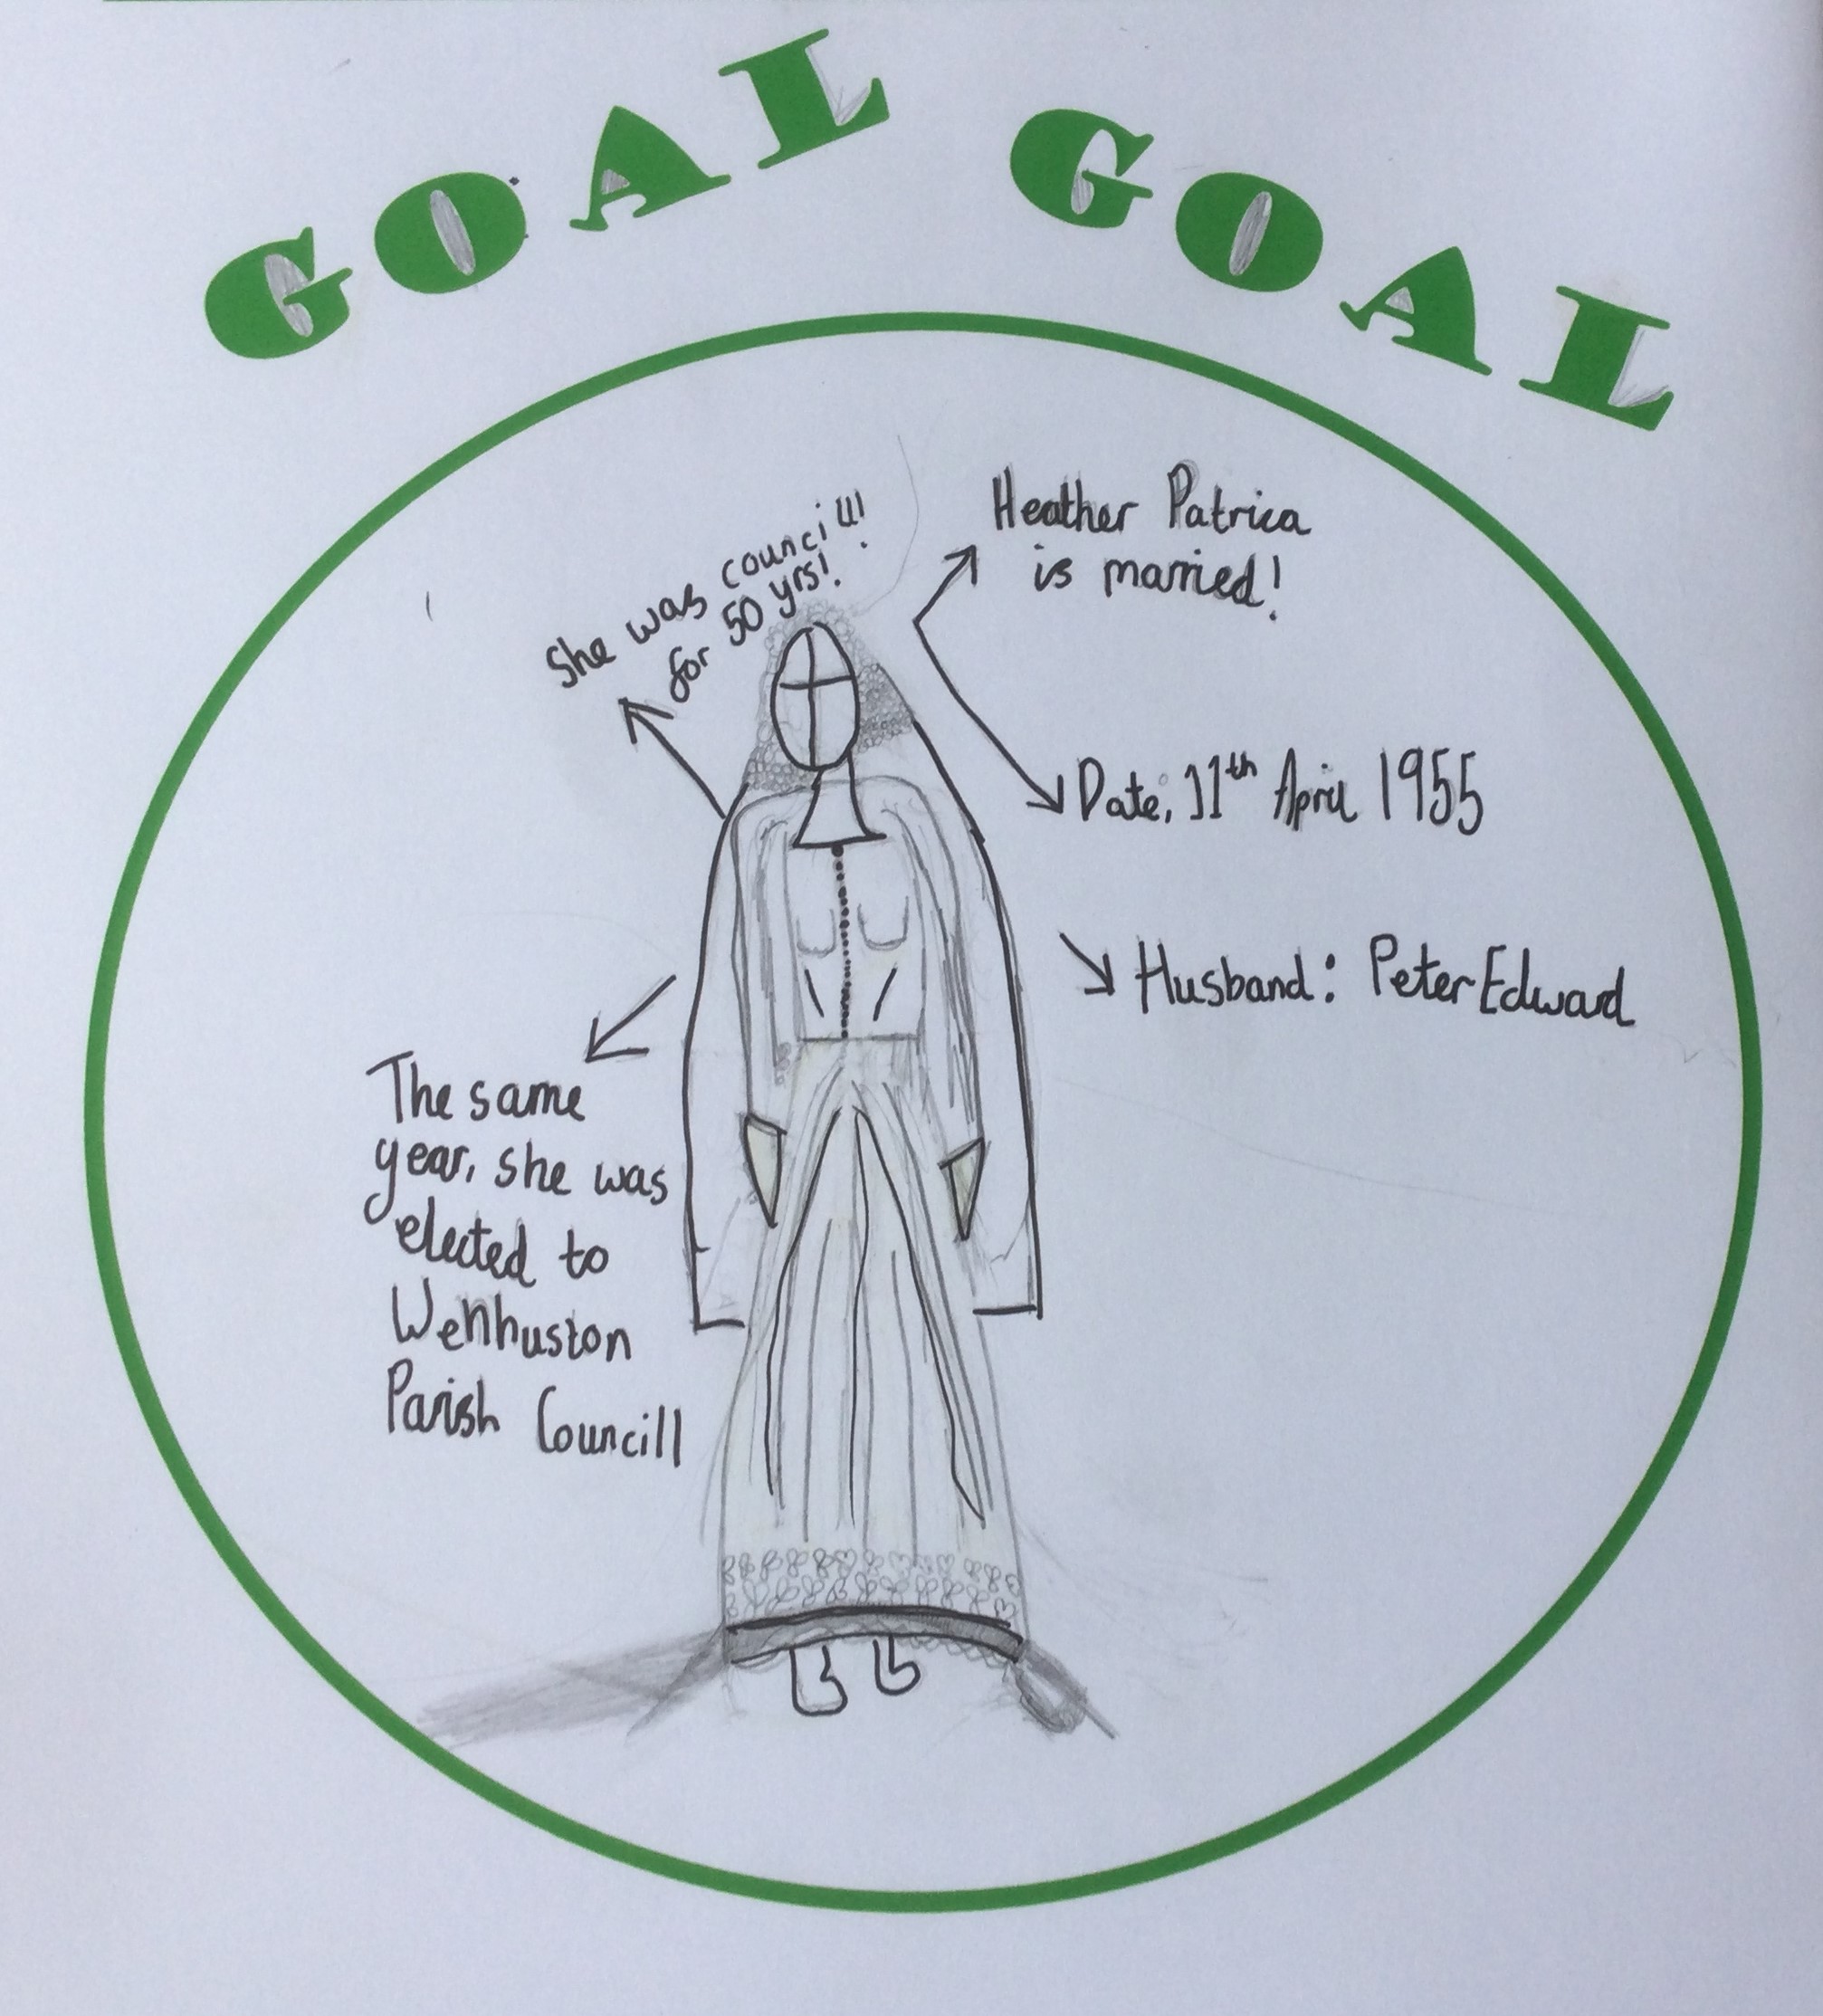 GOAL GOAL
She was councilll!
for 50 yrs!
Heather Patrica
is married!
Date, 11th April 1955
Husband: Peter Edward
The same
year, she was
elected to
Wenhuston
Parish Councill